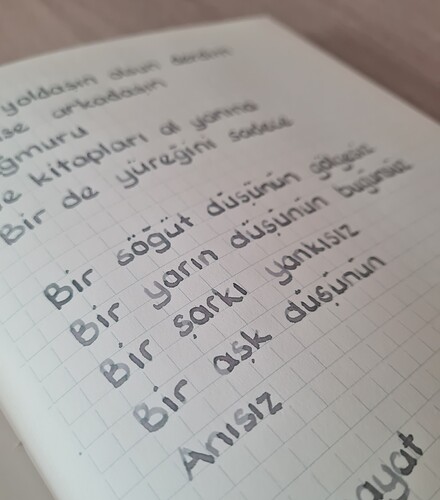 yoldasın olsun derdin
se arkadasın
ğmuru
e kitapları al yanına
Bir de yüreğini sadece
Bir söğüt düşünün gölgesiz
Bir yarın düşünün bugünsüz
Bir şarkı yankısız
Bir aşk düşünün
Anısız
ayat